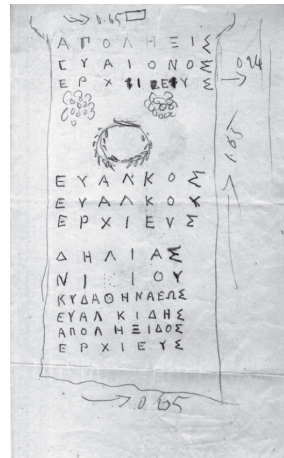 0.65
ΑΠΟΛΗΞΙΣ
ΕΥΑΙΟΝΟΣ
ΕΡΧΙΕΥΣ
0.24
1.65
ΕΥΑΛΚΟΣ
ΕΥΑΛΚΟΥ
ΕΡΧΙΕΥΣ
ΔΗΛΙΑΣ
ΚΥΔΑΘΗΝΑΕΩΣ
ΕΥΑΛΚΙΔΗΣ
ΑΠΟΛΗΞΙΔΟΣ
ΕΡΧΙΕΥΣ
0.65